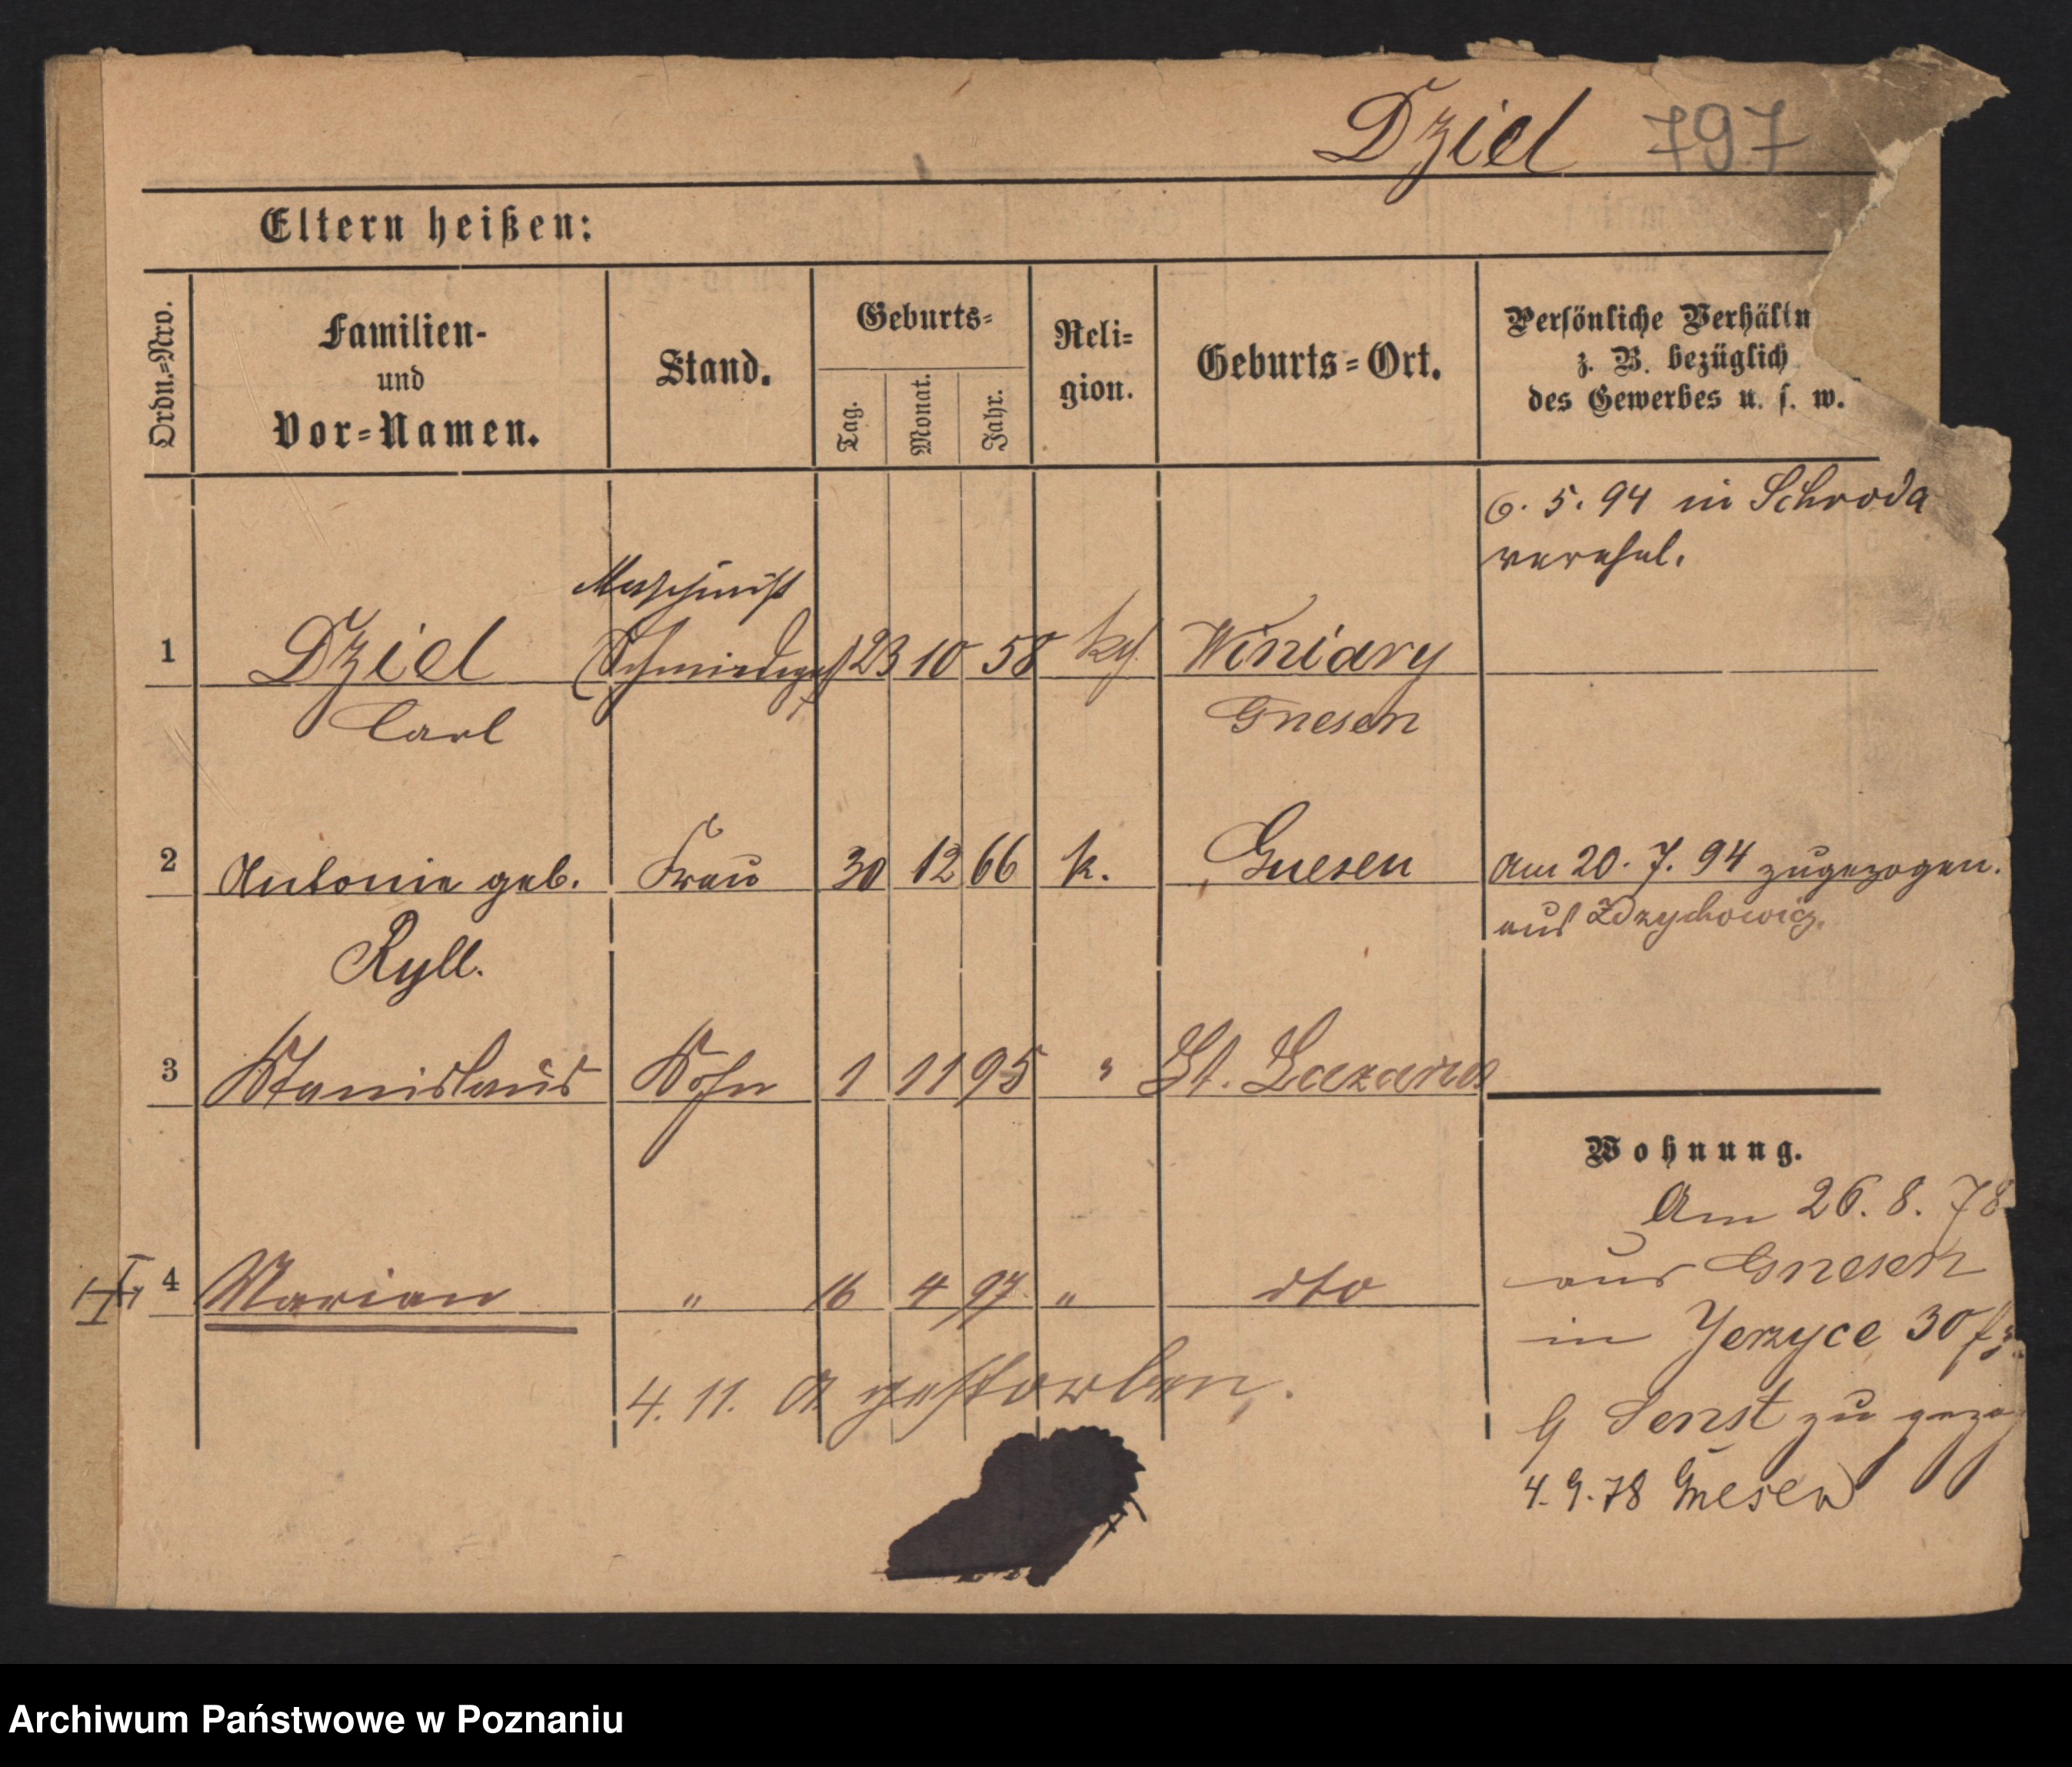 Dziel 797
Eltern heißen:
Ordn.=Nro.
Familien-
und
Vor=Namen.
Stand.
Geburts=
Tag.
Monat.
Jahr.
Reli=
gion.
Geburts=Ort.
Persönliche Verhältn
z. B. bezüglich
des Gewerbes u. s. w.
6. 5. 94 in Schroda
verehel.
Maschinist
1 Dziel Schmiedeges 23 10 58 kth Winiary
Carl Gnesen
2 Antonie geb. Frau 30 12 66 k. Gnesen Am 20. 7. 94 zugezogen.
aus Zdzychowic
Ryll.
3 Stanislaus Sohn 1 11 95 " St. Lazarus
Wohnung.
Am 26. 8. 78
aus Gnesen
4 Marian " 16 4 97 " dto
in Jerzyce 30
4. 11. gestorben.
zu gezo
4. 9. 78 Gnesen
Archiwum Państwowe w Poznaniu